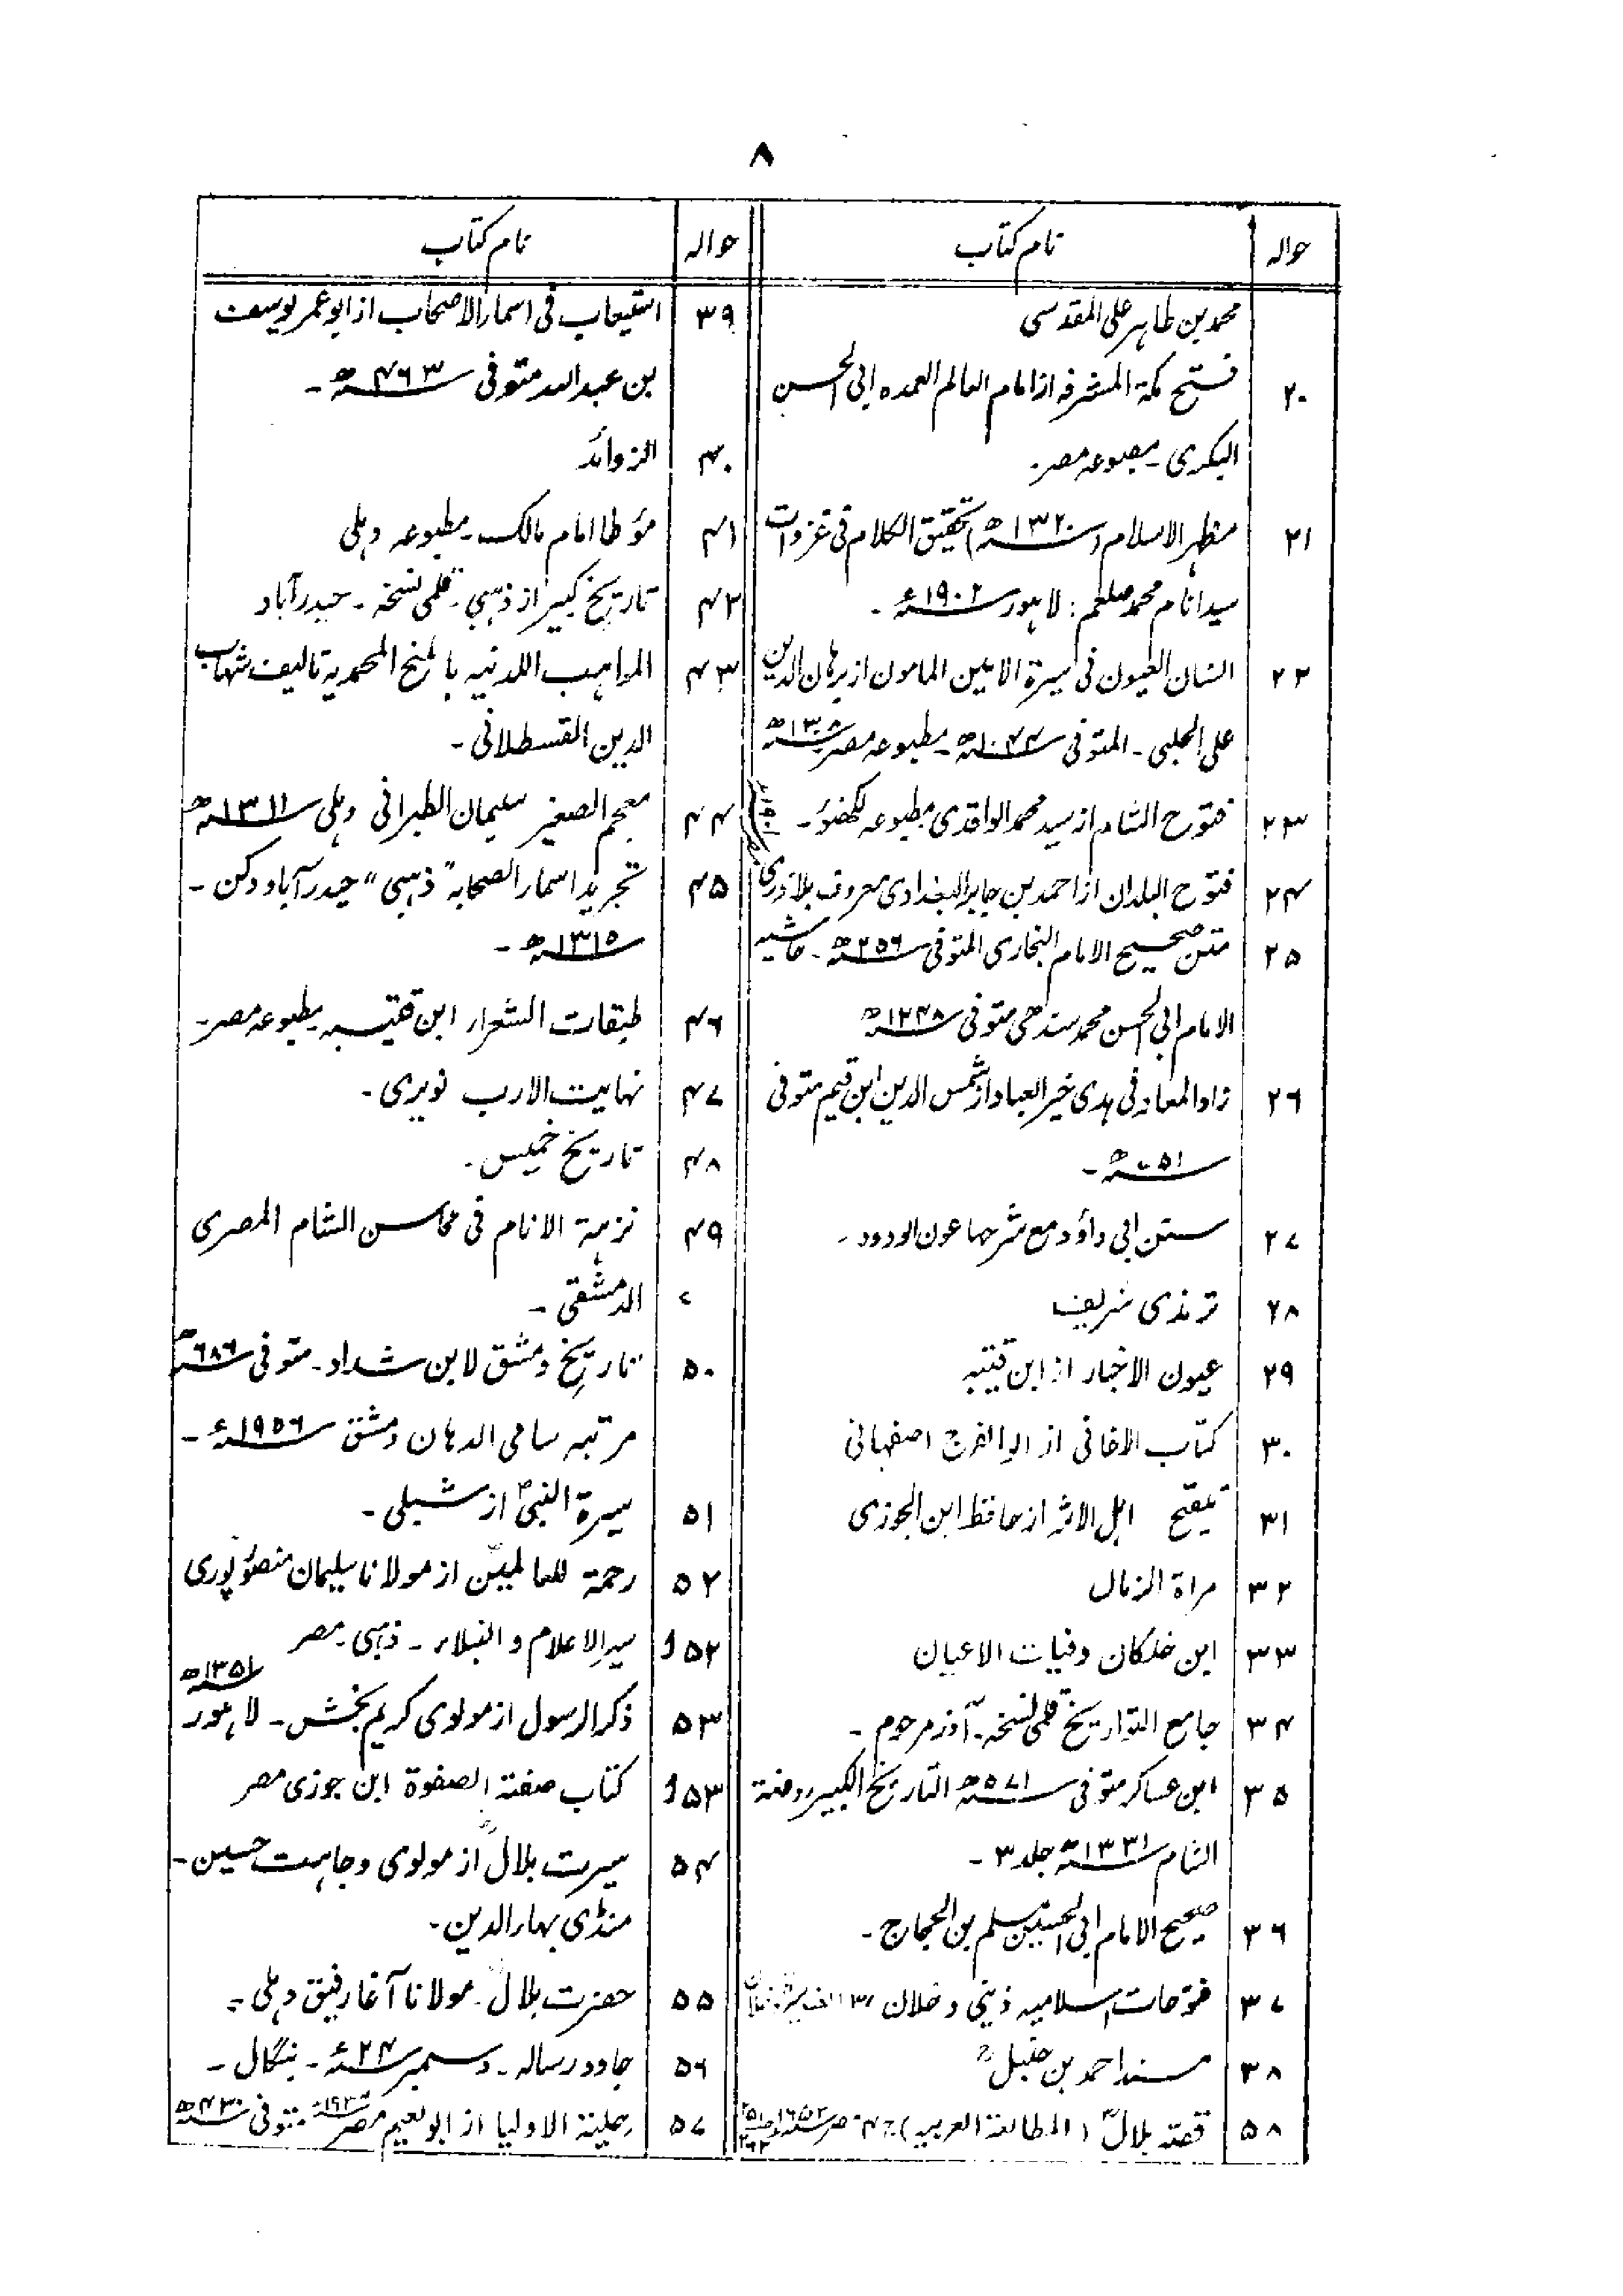 ۸
حوالہ نام کتاب
محمد بن طاہر علی المقدسی
۲۰ فستح مکۃ المشرفہ از امام العالم العمدہ ابی الحسن
البکری ۔ مطبوعہ مصر۔
۲۱ مظہر الاسلام (۱۳۲۰ھ) تحقیق الکلام فی غزوات
سیدانام محمد صلعم : لاہور ۱۹۰۲ء ۔
۲۲ انسان العیون فی سیرۃ الامین المامون از برہان الدین
علی الحلبی ۔ المتوفی ۱۰۴۴ھ ۔ مطبوعہ مصر ۱۳۰۸ھ
۲۳ فتوح الشام از سید محمد الواقدی مطبوعہ لکھنؤ ۔
۲۴ فتوح البلدان از احمد بن جابر البغدادی معروف بلاذری
۲۵ متن صحیح الامام البخاری المتوفی ۲۵۶ھ ۔ حاشیہ
الامام ابی الحسن محمد سندھی متوفی ۱۲۴۸ھ
۲۶ زاد المعاد فی ہدی خیر العباد از شمس الدین ابن قیم متوفی
۷۵۱ھ ۔
۲۷ سنن ابی داؤد مع شرحہا عون الودود ۔
۲۸ ترمذی شریف
۲۹ عیون الاخبار از ابن قتیبہ
۳۰ کتاب الاغانی از ابو الفرج اصفہانی
۳۱ تلقیح اہل الاثر از حافظ ابن الجوزی
۳۲ مراۃ الزمان
۳۳ ابن خلکان وفیات الاعیان
۳۴ جامع التواریخ قلمی نسخہ ۔ آذر مرحوم ۔
۳۵ ابن عساکر متوفی ۵۷۱ھ التاریخ الکبیر روضۃ
الشام ۱۳۳۱ھ جلد ۳ ۔
۳۶ صحیح الامام ابی الحسین مسلم بن الحجاج ۔
۳۷ فتوحات اسلامیہ ذینی دحلان
۳۸ مسند احمد بن حنبلؒ
۵۸ قصۃ بلالؓ (المطالعۃ العربیہ) ج ۴ مصر
حوالہ نام کتاب
۳۹ استیعاب فی اسمار الاصحاب از ابو عمر یوسف
بن عبداللہ متوفی ۴۶۳ھ ۔
۴۰ الزوائد
۴۱ مؤطا امام مالک ۔ مطبوعہ دہلی
۴۲ تاریخ کبیر از ذہبی ۔ قلمی نسخہ ۔ حیدرآباد
۴۳ المواہب اللدنیہ بالمنح المحمدیۃ تالیف شہاب
الدین القسطلانی ۔
۴۴ معجم الصغیر سلیمان الطبرانی دہلی ۱۳۱۱ھ
۴۵ تجرید اسمار الصحابہ " ذہبی " حیدرآباد دکن ۔
۱۳۱۵ھ ۔
۴۶ طبقات الشعرار ابن قتیبہ مطبوعہ مصر ۔
۴۷ نہایت الارب نویری ۔
۴۸ تاریخ خمیس ۔
۴۹ نزہۃ الانام فی محاسن الشام المصری
الدمشقی ۔
۵۰ تاریخ دمشق لابن شداد ۔ متوفی ۶۸۶ھ
مرتبہ سامی الدہان دمشق ۱۹۵۶ء ۔
۵۱ سیرۃ النبیؐ از شبلی ۔
۵۲ رحمۃ للعالمینؐ از مولانا سلیمان منصورپوری
۵۲ا سیر الاعلام و النبلاء ۔ ذہبی ۔ مصر
۵۳ ذکر الرسول از مولوی کریم بخش ۔ لاہور ۱۳۵۱ھ
۵۳ا کتاب صفتۃ الصفوۃ ابن جوزی مصر
۵۴ سیرت بلالؓ از مولوی وجاہت حسین ۔
منڈی بہار الدین ۔
۵۵ حضرت بلالؓ ۔ مولانا آغا رفیق دہلی ۔
۵۶ جادو رسالہ ۔ دسمبر ۲۴ء ۔ بنگال ۔
۵۷ حلیتۃ الاولیا از ابو نعیم مصر متوفی ۴۳۰ھ